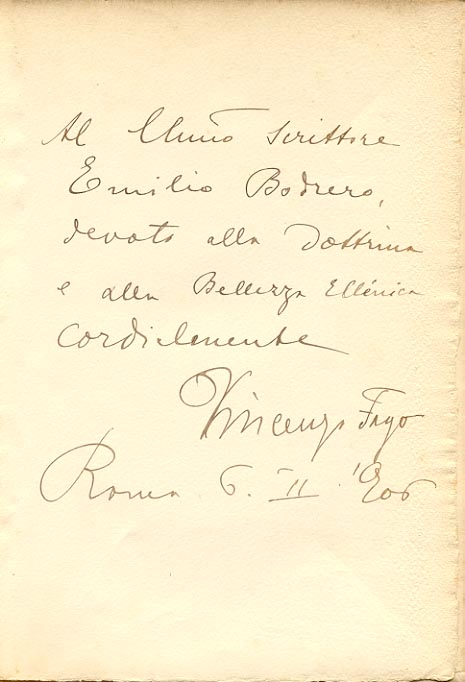 Al Chiño scrittore
Emilio Bodrero,
devoto alla Dottrina
e alla Bellezza Ellénica
cordialmente
Vincenzo Fago
Roma 6. II